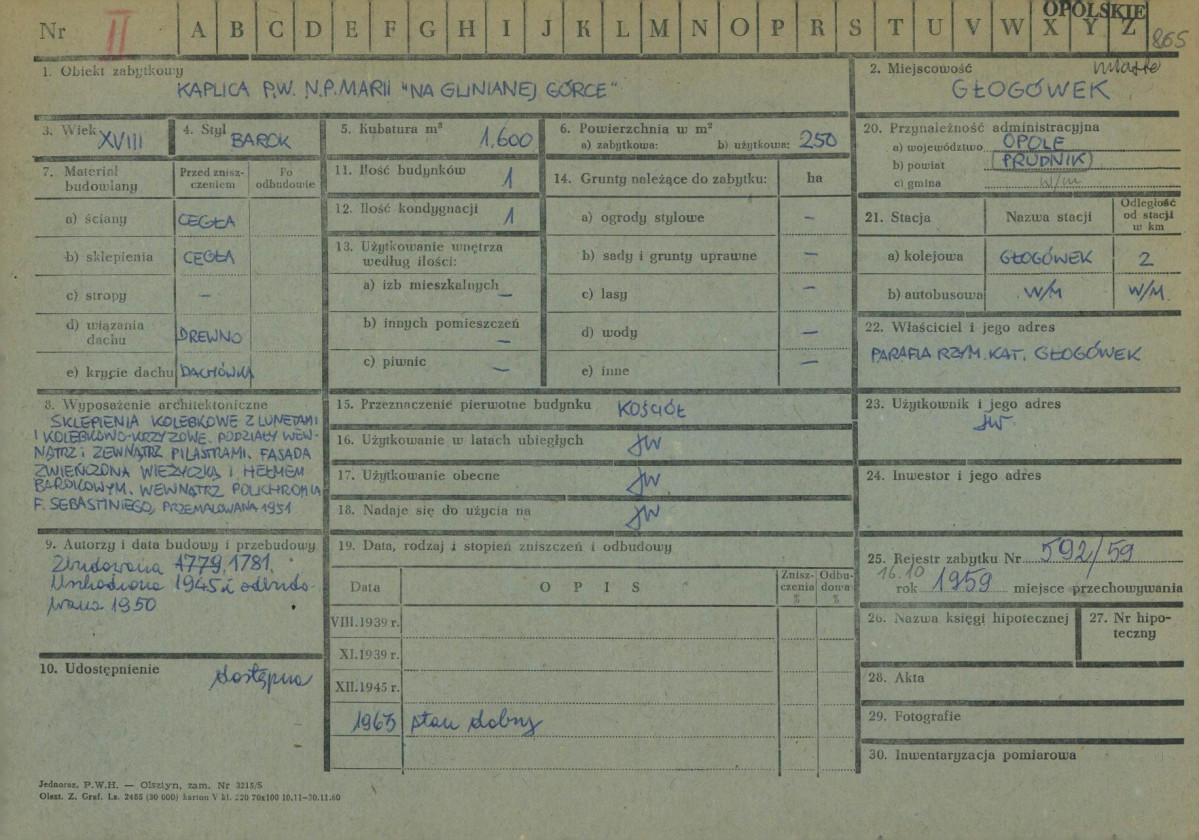 Nr II A B C D E F G H I J K L M N O P R S T U V W X Y Z OPOLSKIE 865
1. Obiekt zabytkowy
KAPLICA P.W. N.P.MARII "NA GLINIANEJ GÓRCE"
2. Miejscowość miasto
GŁOGÓWEK
3. Wiek XVIII
4. Styl BAROK
5. Kubatura m³ 1.600
6. Powierzchnia w m²
a) zabytkowa: b) użytkowa: 250
20. Przynależność administracyjna
a) województwo OPOLE
b) powiat (PRUDNIK)
c) gmina w/m
7. Materiał budowlany
Przed zniszczeniem
Po odbudowie
a) ściany CEGŁA
b) sklepienia CEGŁA
c) stropy –
d) wiązania dachu DREWNO
e) krycie dachu DACHÓWKA
11. Ilość budynków 1
12. Ilość kondygnacji 1
13. Użytkowanie wnętrza
według ilości:
a) izb mieszkalnych –
b) innych pomieszczeń –
c) piwnic –
14. Grunty należące do zabytku: ha
a) ogrody stylowe –
b) sady i grunty uprawne –
c) lasy –
d) wody –
e) inne –
21. Stacja Nazwa stacji Odległość od stacji w km
a) kolejowa GŁOGÓWEK 2
b) autobusowa W/M W/M.
22. Właściciel i jego adres
PARAFIA RZYM. KAT. GŁOGÓWEK
8. Wyposażenie architektoniczne
SKLEPIENIA KOLEBKOWE Z LUNETAMI
I KOLEBKOWO-KRZYŻOWE. PODZIAŁY WEW-
NĄTRZ i ZEWNĄTRZ PILASTRAMI. FASADA
ZWIEŃCZONA WIEŻYCZKĄ I HEŁMEM
BAROKOWYM. WEWNĄTRZ POLICHROMIA
F. SEBASTINIEGO, PRZEMALOWANA 1951
15. Przeznaczenie pierwotne budynku KOŚCIÓŁ
16. Użytkowanie w latach ubiegłych JW
17. Użytkowanie obecne JW
18. Nadaje się do użycia na JW
23. Użytkownik i jego adres
JW.
24. Inwestor i jego adres
9. Autorzy i data budowy i przebudowy
Zbudowana 1779, 1781.
Uszkodzona 1945 i odbudo-
wana 1950
10. Udostępnienie dostępna
19. Data, rodzaj i stopień zniszczeń i odbudowy
Data O P I S Zniszczenia % Odbudowa %
VIII.1939 r.
XI.1939 r.
XII.1945 r.
1965 stan dobry
25. Rejestr zabytku Nr 592/59
16.10
rok 1959 miejsce przechowywania
26. Nazwa księgi hipotecznej
27. Nr hipo-
teczny
28. Akta
29. Fotografie
30. Inwentaryzacja pomiarowa
Jednoraz. P.W.H. — Olsztyn, zam. Nr 3215/S
Olszt. Z. Graf. Lz. 2455 (30 000) karton V kl. 220 70x100 10.11-30.11.60